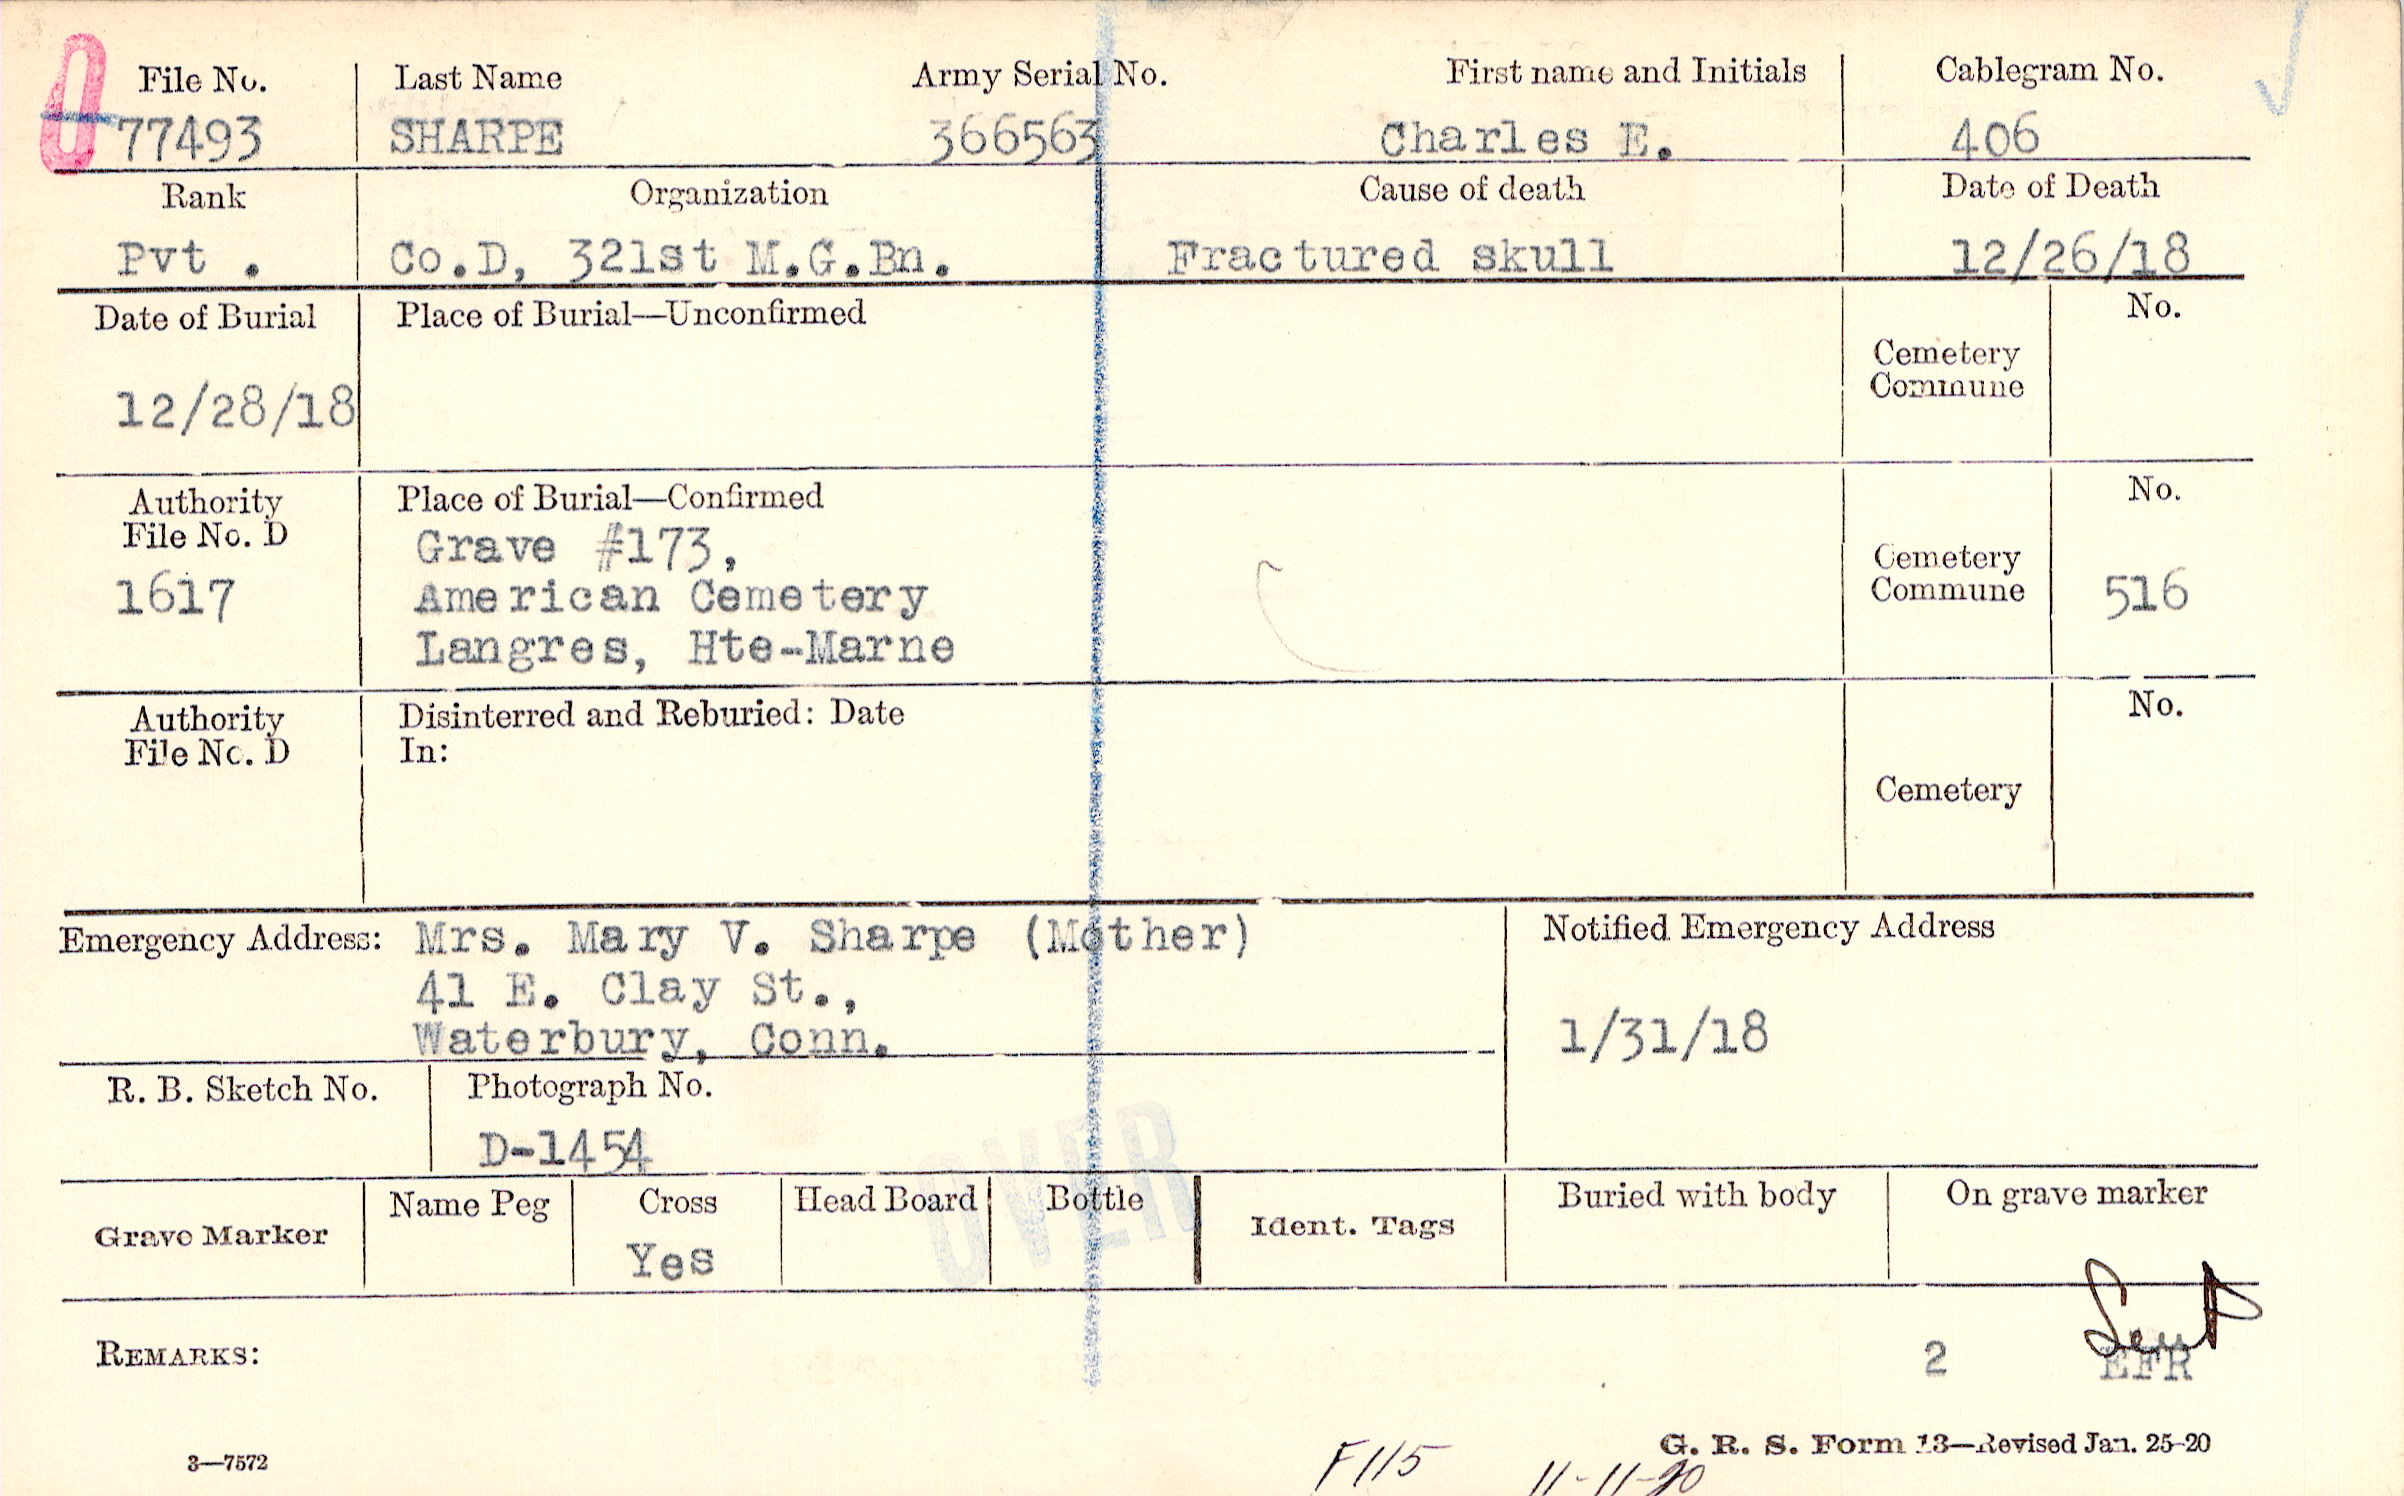 File No. Last Name Army Serial No. First name and Initials Cablegram No.
77493 SHARPE 366563 Charles E. 406
Rank Organization Cause of death Date of Death
Pvt . Co.D, 321st M.G.Bn. Fractured skull 12/26/18
Date of Burial Place of Burial—Unconfirmed No.
Cemetery
Commune
12/28/18
Authority Place of Burial—Confirmed No.
File No. D Grave #173,
1617 American Cemetery Cemetery
Commune 516
Langres, Hte-Marne
Authority Disinterred and Reburied: Date No.
File No. D In:
Cemetery
Emergency Address: Mrs. Mary V. Sharpe (Mother) Notified Emergency Address
41 E. Clay St.,
Waterbury, Conn. 1/31/18
R. B. Sketch No. Photograph No.
D-1454
OVER
Grave Marker Name Peg Cross Head Board Bottle Ident. Tags Buried with body On grave marker
Yes
Sent
REMARKS: 2 EFR
G. R. S. Form 13—Revised Jan. 25-20
3—7572 F115 11-11-20